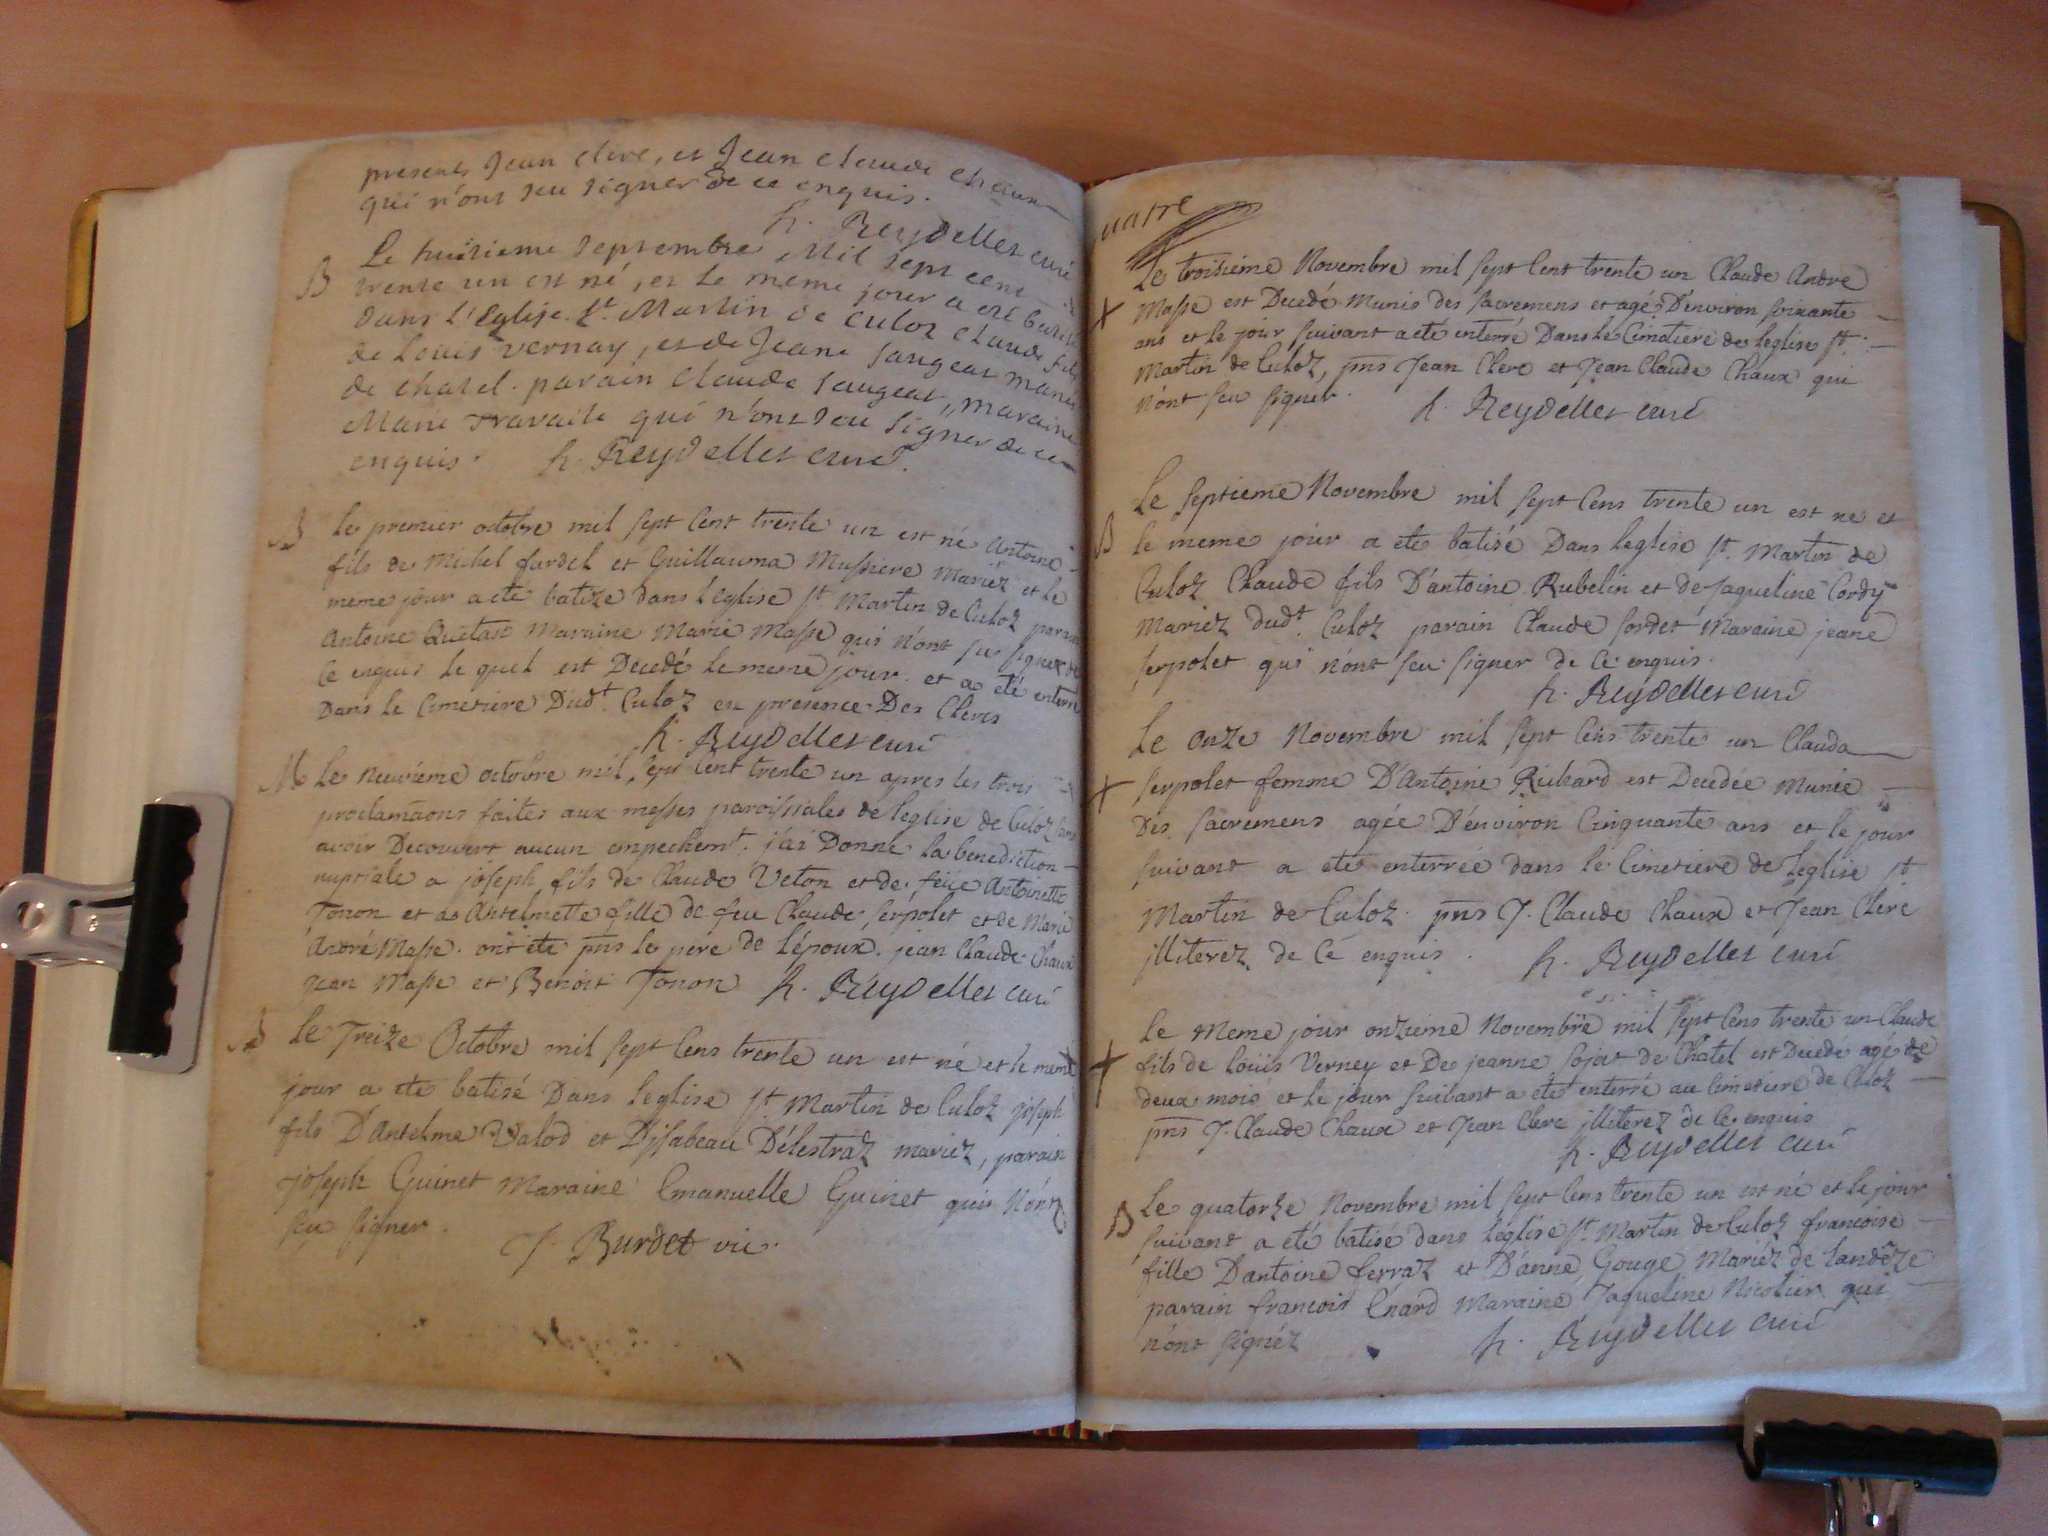 presents Jean clerc, et Jean claude chaux
qui n'ont seu signer de ce enquis.
h. Reydellet curé
B Le huitieme septembre Mil sept cent
trente un est né, et le meme jour a eté batisé
dans l'Eglise St. Martin de culoz claude fils
de Louis vernay, et de Jeane saugeat mariés
de chatel. parain claude saugeat, maraine
Marie Travaile qui n'ont seu signer de ce
enquis. h. Reydellet curé.
B le premier octobre mil sept cent trente un est né Antoine
fils de Michel furdel et Guillauma Massiere Mariéz et le
meme jour a eté batize dans l'eglise St Martin de Culoz parain
Antoine Quetant Maraine Marie Masse qui n'ont seu signer de
Ce enquis le quel est Decedé le meme jour et a eté enterré
Dans le Cimetiere Dudt. Culoz en presence Des Clercs
h. Reydellet curé
M Le neuvieme octobre mil sept cent trente un apres les trois
proclamaons faites aux messes paroissiales de leglise de Culoz sans
avoir Decouvert aucun empechemt. j'ai Donne la benediction
nuptiale a joseph fils de Claude Veton et de feüe Antoinette
Tonon et de Antelmette fille de feu Claude Serpolet et de Marie
André Masse. ont ete pns le pere de l'époux. jean Claude Chaux
jean Masse et Benoit Tonon h. Reydellet curé
B Le Treize Octobre mil sept Cens trente un est né et le meme
jour a ete batisé Dans leglise St Martin de Culoz joseph
fils D'Antelme Balod et D'jsabeau Délestraz mariez, parain
joseph Guinet Maraine Emanuelle Guinet qui N'ont
seu signer.
J. Burdet vic.
uatre
Le troisiéme Novembre mil sept Cent trente un Claude André
+ Masse est Decedé Munis des sacremens et agé D'environ soixante
ans et le jour suivant a eté enterré Dans le Cimetiere de leglise St
Martin de Culoz, pns Jean Clerc et Jean Claude Chaux qui
n'ont seu signer. h. Reydellet curé
Le septieme Novembre mil sept Cens trente un est ne et
B le meme jour a eté batisé Dans leglise St. Martin de
Culoz Claude fils D'antoine Rubelin et de jaqueline Cordy
Mariez Dudt. Culoz parain Claude sordet Maraine jeane
serpolet qui n'ont seu signer de Ce enquis.
h. Reydellet curé
Le onze Novembre mil sept Cens trente un Clauda
+ Serpolet femme D'Antoine Richard est Decedée Munie
Dés sacremens agée D'environ Cinquante ans et le jour
suivant a eté enterrée dans le Cimetiere de leglise St
Martin de Culoz. pns J. Claude Chaux et Jean Clerc
jlliterez de Cé enquis. h. Reydellet curé
Le Meme jour onzieme Novembre mil sept Cens trente un Claude
+ fils de loüis Verney et De jeanne sojat de Chatel est Decedé agé de
deux mois et le jour suivant a eté enterré au Cimetiere de Culoz
pns J. Claude Chaux et Jean Clerc jlliterez de Ce enquis
h. Reydellet curé
B Le quatorze Novembre mil sept Cens trente un est né et le jour
suivant a eté batisé dans leglise St. Martin de Culoz francoise
fille D'antoine ferraz et D'anne Gouge Mariéz de Landéze
parain francois Enard Maraine Jaqueline Nicolier qui
n'ont signéz h. Reydellet curé